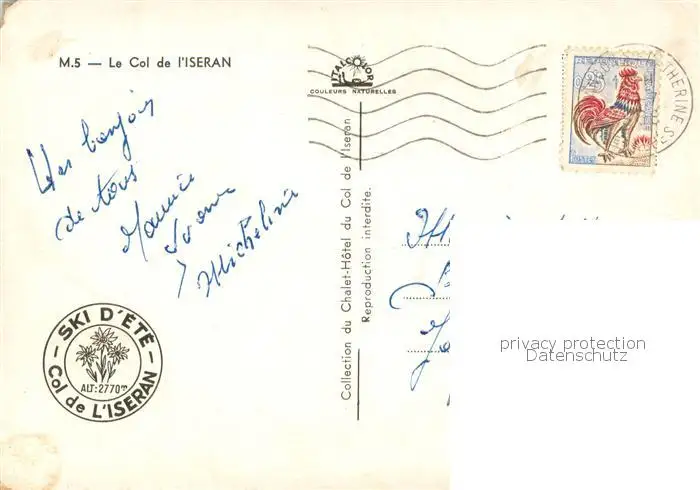 M.5 — Le Col de l'ISERAN
ITALCOLOR
COULEURS NATURELLES
Un bonjour
de tous
Maurice
Yvonne
Micheline
SKI D'ÉTÉ
ALT: 2770m
Col de L'ISERAN
Collection du Chalet-Hôtel du Col de l'Iseran
Reproduction interdite.
0,25
POSTES
privacy protection
Datenschutz